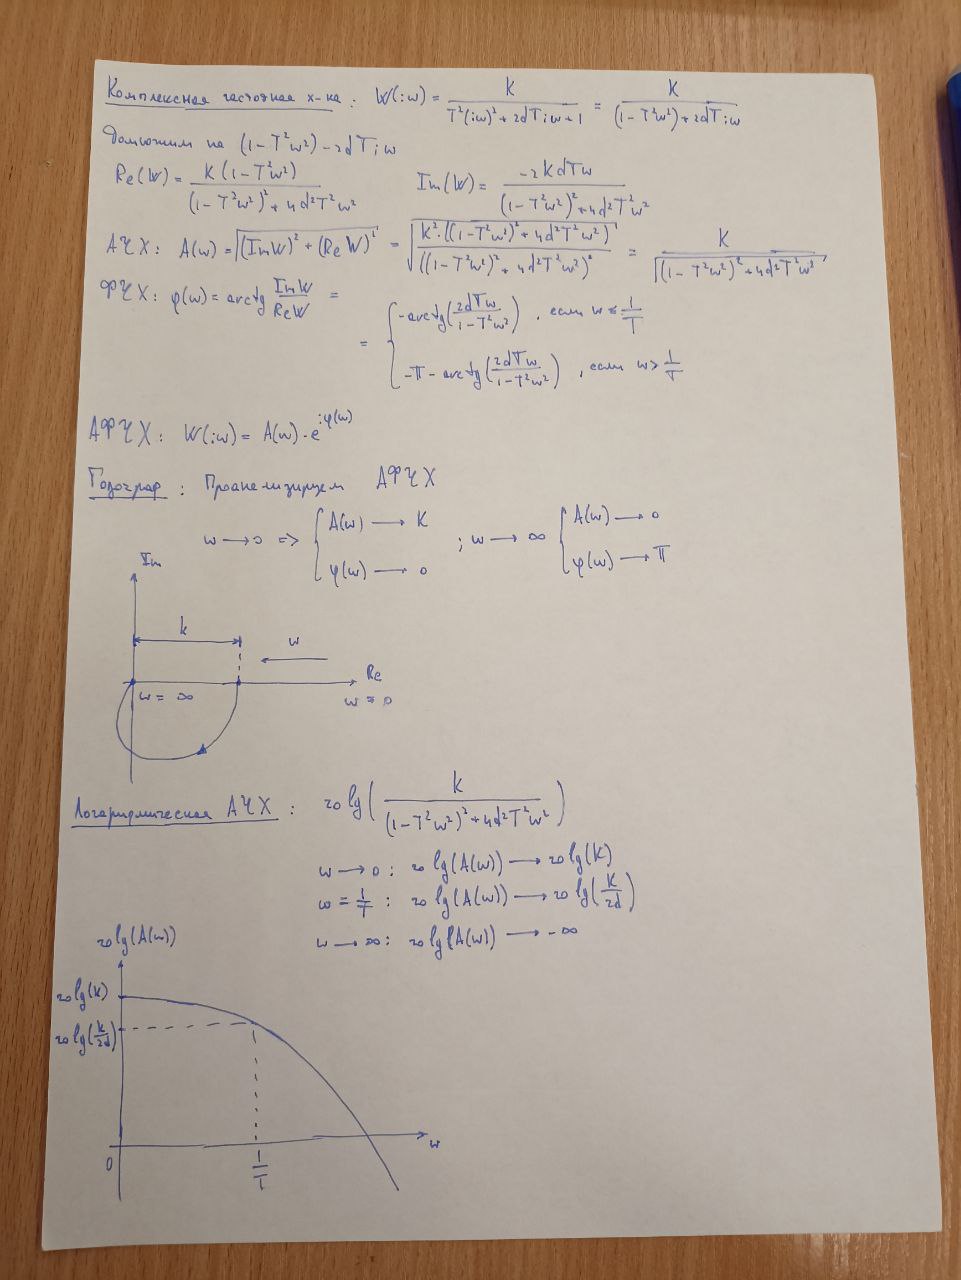 Комплексная частотная х-ка: W(iw) = K / (T²(iw)² + 2dTiw + 1) = K / ((1-T²w²) + 2dTiw)
Домножим на (1-T²w²) - 2dTiw
Re(W) = K(1-T²w²) / ((1-T²w²)² + 4d²T²w²) Im(W) = -2KdTw / ((1-T²w²)² + 4d²T²w²)
АЧХ: A(w) = √((ImW)² + (ReW)²) = √(K²·((1-T²w²)² + 4d²T²w²) / ((1-T²w²)² + 4d²T²w²)²) = K / √((1-T²w²)² + 4d²T²w²)
ФЧХ: φ(w) = arctg ImW/ReW =
= { -arctg(2dTw / (1-T²w²)), если w ≤ 1/T
-π - arctg(2dTw / (1-T²w²)), если w > 1/T
АФЧХ: W(iw) = A(w)·e^{iφ(w)}
Годограф: Проанализируем АФЧХ
w → 0 => { A(w) → K ; w → ∞ { A(w) → 0
φ(w) → 0 φ(w) → π
Im
k
w
Re
w = ∞
w = 0
Логарифмическая АЧХ: 20 lg( k / ((1-T²w²)² + 4d²T²w²) )
w → 0: 20 lg(A(w)) → 20 lg(K)
w = 1/T: 20 lg(A(w)) → 20 lg(K/2d)
w → ∞: 20 lg(A(w)) → -∞
20 lg(A(w))
20 lg(k)
20 lg(k/2d)
w
0
1/T